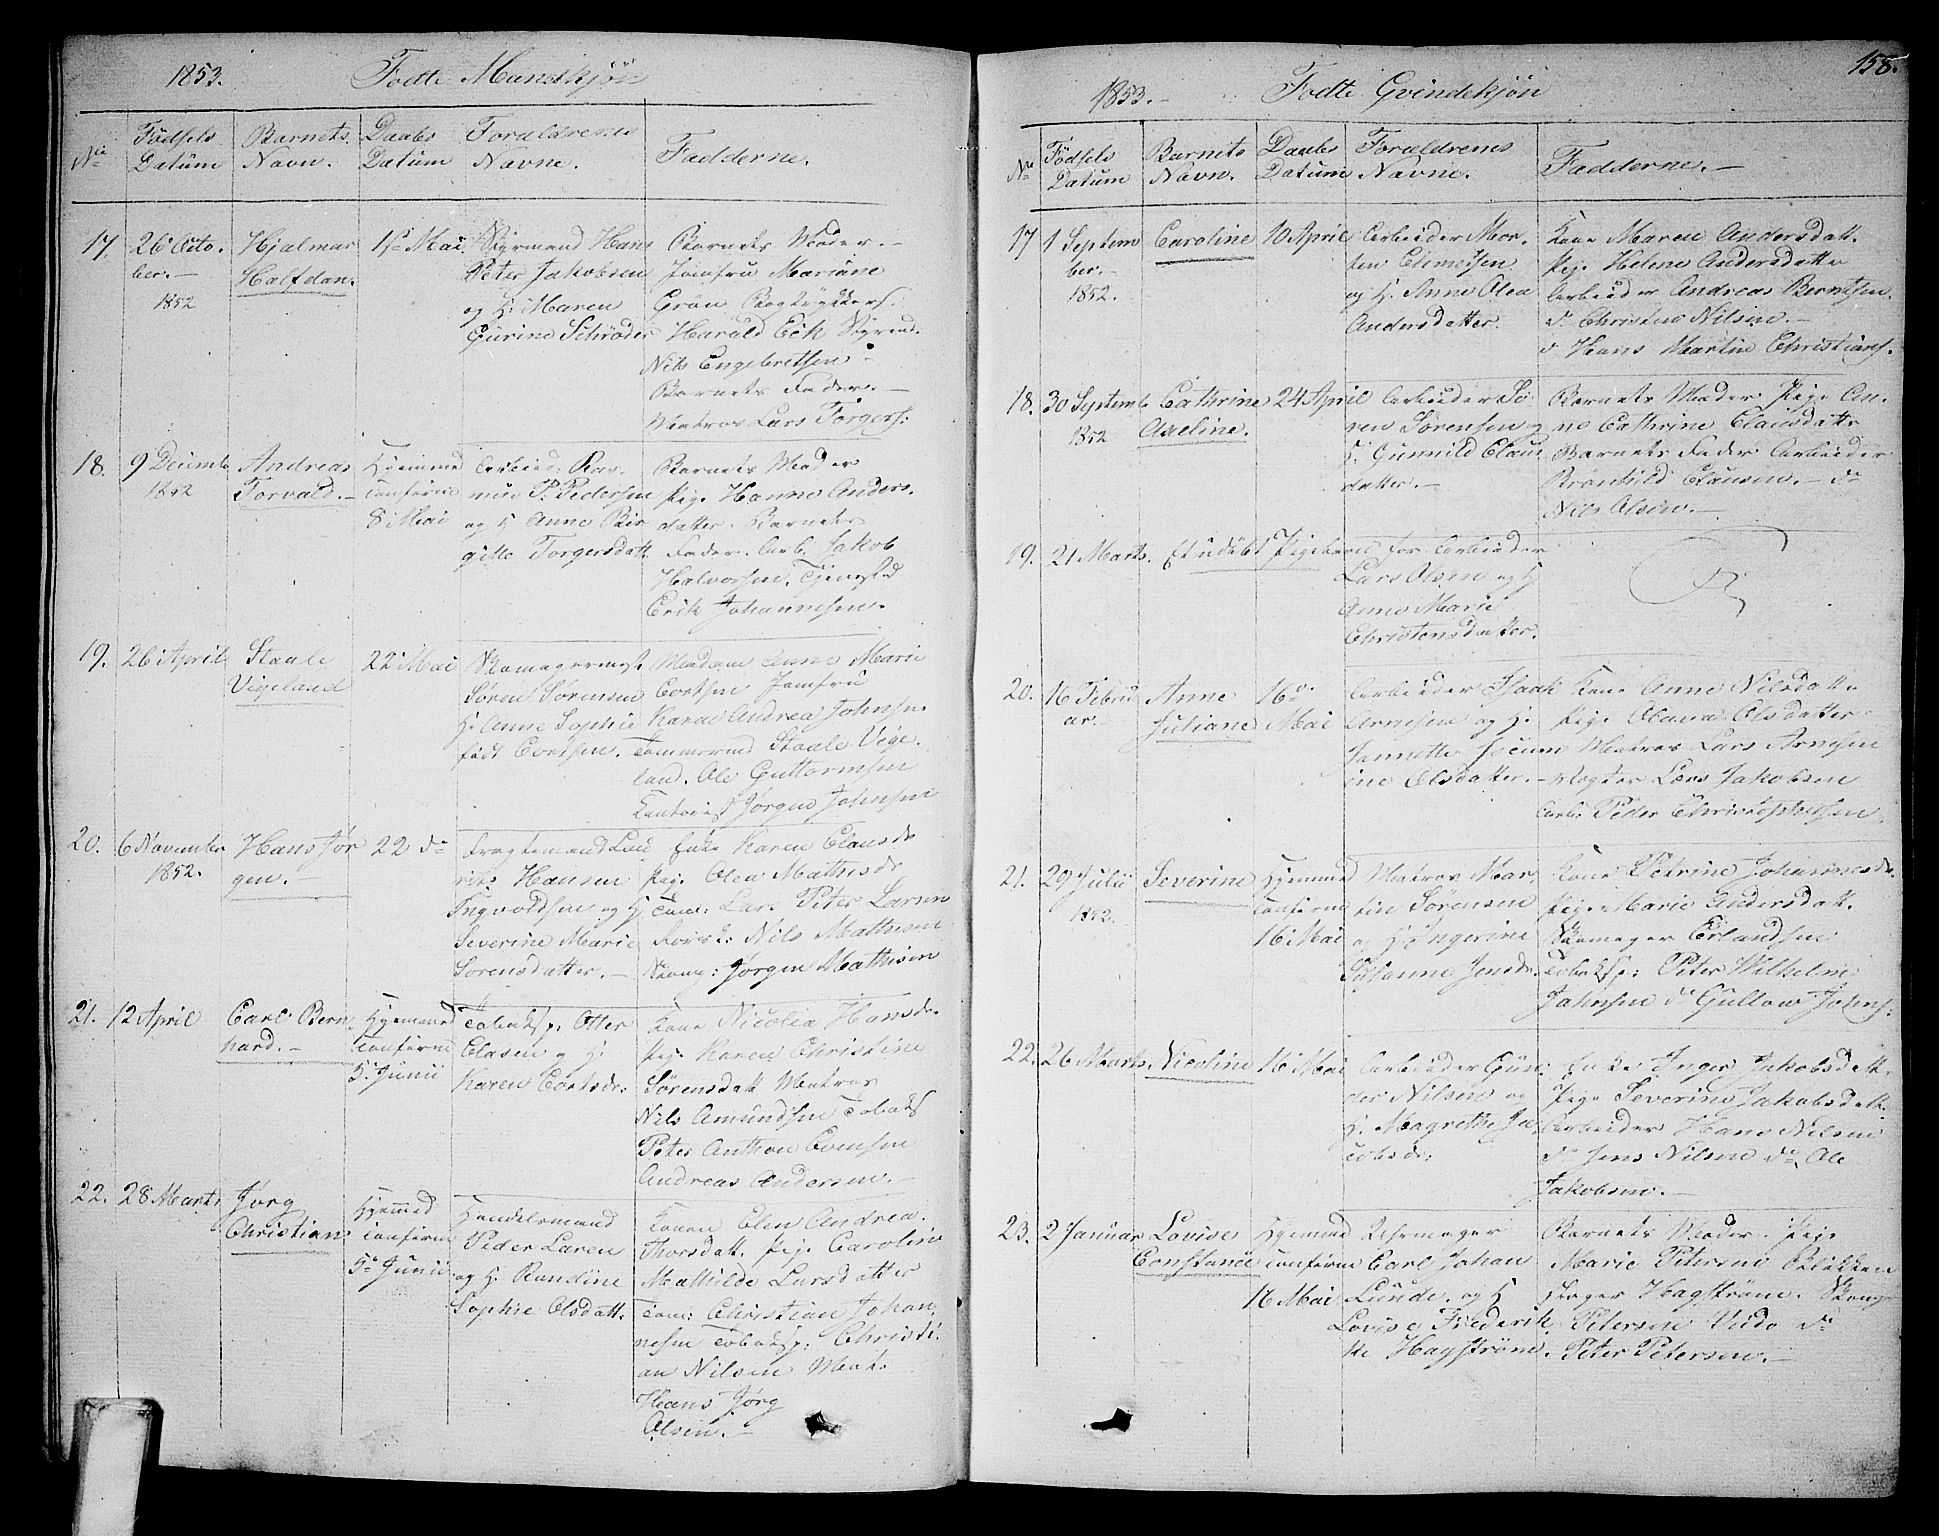 1853. Fødte Mandkjøn
No
Fødsels Datum
Barnets Navn.
Daabs Datum
Forældrenes Navne.
Fadderne.
17. 26 Octo-
ber.-
1852
Hjalmar
Halfdan.
1ste Mai
Styrmand Hans
Peter Jakobsen
og H: Maren
Gurine Schrøder
Barnets Moder.-
Jomfru Mariane
Grøn Bogtrykker
Harald Eek Styrm.
Nils Engebretsen
Barnets Fader.-
Matros Lars Torgers:
18. 9 Decemb
1852
Andreas
Torvald.-
Hjemmed
confirme
8 Mai
Arbeid: Ras-
mus P. Pedersen
og H Anne Bir
gitte Torgersdatt.
Barnets Moder
Pige Hanne Anders.
datter. Barnets
Fader. Arb. Jakob
Halvorsen. Tjenestd
Erik Johannesen.
19. 26 April
Staale
Vigeland
22 Mai
Skomagermest
Søren Sørensen
H. Anne Sophie
født Cortsen.
Madam Anne Marie
Cortsen Jomfru
Karen Andrea Johnsn.
Tømmermd Staale Vige-
land. Ole Guttormsen
Kontorist Jørgen Johnsen
20. 6 November
1852.
Hans Jør
gen.-
22 do
Fragtemand Lau
rits Hansen
Ingvoldsen og H
Severine Marie
Sørensdatter.-
Enke Karen Clausdr
Pige Olea Mathisdr
Tøm: Lars Peter Larsen
Forsk: Nils Mathisen
Skom: Jørgen Mathisen
21. 12 April
Carl Bern-
hard.-
Hjemmed
confirme
5 Junii
Tobaksp: Otter
Clasen og H:
Karen Cortsdr:
Kone Nicolia Hansdr.
Pig. Karen Christine
Sørensdatt Matros
Nils Amundsen Tobaks
Peter Anthon Evensen
Andreas Andersen.-
22. 28 Marts
Jørg
Christian
Hjemmed
confirme
5 Junii
Handelsmand
Peder Laren
og H. Randine
Sophie Olsdatt.
Konen Elen Andrea
Thorsdatt. Pige Caroline
Mathilde Larsdatter
Tøm: Christian Johan
nesen Tobaksp: Christi-
an Nilsen Mat.
Hans Jørg
Olsen.-
158.
1853.- Fødte Qvindekjøn
No
Fødsels Datum
Barnets Navn.
Daabs Datum
Forældrenes Navne.
Fadderne.-
17 1 Septem
ber.-
1852.
Caroline
10 April
Arbeider Mor-
ten Clemetsen
og H. Anne Olea
Andersdatter.
Kone Maren Andersdatt.
Pige Helene Andersdatter
Arbeider Andreas Berntsen.
do Christen Nilsen.-
d Hans Martin Christians.
18. 30 Septemb
1852
Cathrine
Axeline.
24 April
Arbeider Sø-
ren Sørensen og
H. Gunnild Claus
datter.-
Barnets Moder Pige An-
ne Cathrine Clausdatt
Barnets Fader Arbeider
Brønhild Clausen.- do
Nils Olsen.-
19. 21 Marts. Et udøbt Pigebarn for Arbeider
Lars Olsen og H
Anne Marie
Christensdatter.
20. 16 Febru
ar.-
Anne
Juliane
16
Mai
Arbeider Isaak
Arnesen og H.
Jannette Jocum
ine Olsdatter.-
Kone Anne Nilsdatt
Pige Olava Olsdatter
Matros Lars Arnesen
Vogter Lars Jakobsen
Arb: Peder Christophersen
21. 29 Julii
1852.
Severine
Hjemmed
confirme
16 Mai
Matros Mar-
tin Sørensen
og H: Ingerine
Susanne Jensdr.
Kone Petrine Johannesdr.
Pige Marie Andersdatt.
Skomager Erlandsen
Tobaksp: Peter Wilhelm
Johnsen do Gullow Johns:
22. 26 Marts
Nicoline
16 Mai
Arbeider Gun-
der Nilsen og
H. Magrethe Ja
cobsdr:
Enke Inger Jakobsdatt.
Pige Severine Jakobsdatt
Arbeider Hans Nilsen
do Jens Nilsen do Ole
Jakobsen.-
23. 2 Januar
Lovise
Constance
Hjemmed
confirme
16 Mai
Rebemager
Carl Johan
Lunde. og H
Lovise Frederik
ke Hagstrøm.
Barnets Moder. Pige
Marie Petersen Blikken
slager Hagstrøm. Skomg
Petersen Undo do
Peter Petersen.-